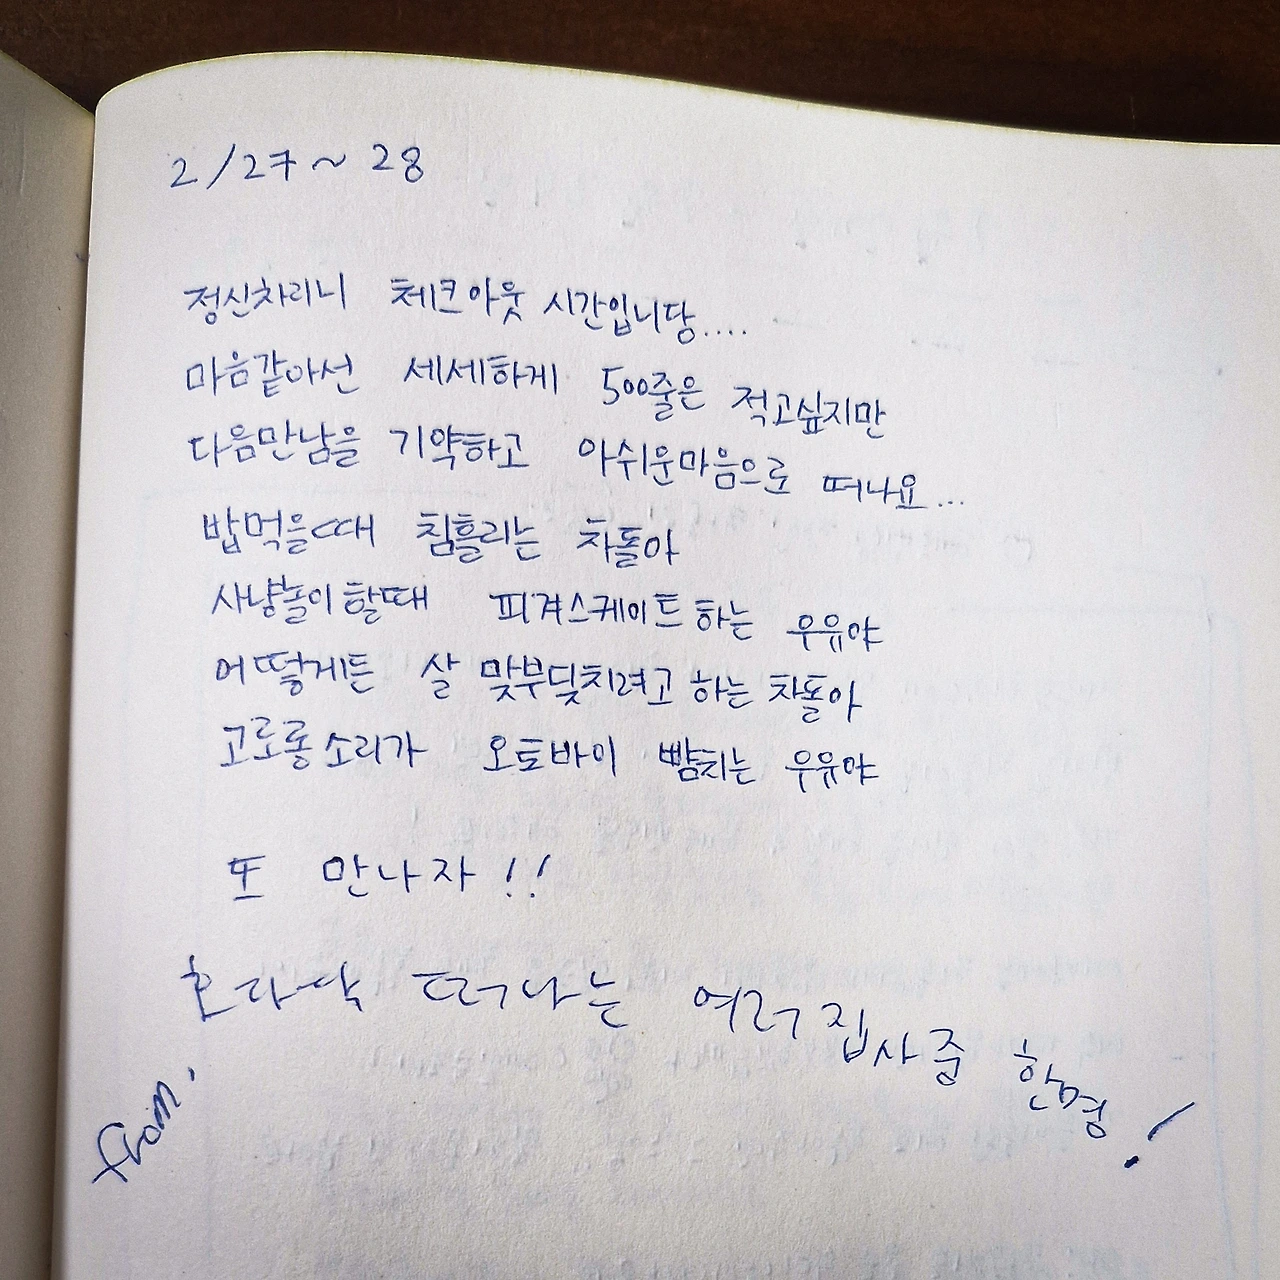 2/27 ~ 28
정신차리니 체크아웃 시간입니당....
마음같아선 세세하게 500줄은 적고싶지만
다음만남을 기약하고 아쉬운마음으로 떠나요...
밥먹을때 침흘리는 차돌아
사냥놀이할때 피겨스케이트하는 우유야
어떻게든 살 맞부딪치려고 하는 차돌아
고로롱소리가 오토바이 뺨치는 우유야
또 만나자!!
호다닥 떠나는 여러집사중 한명!
from.